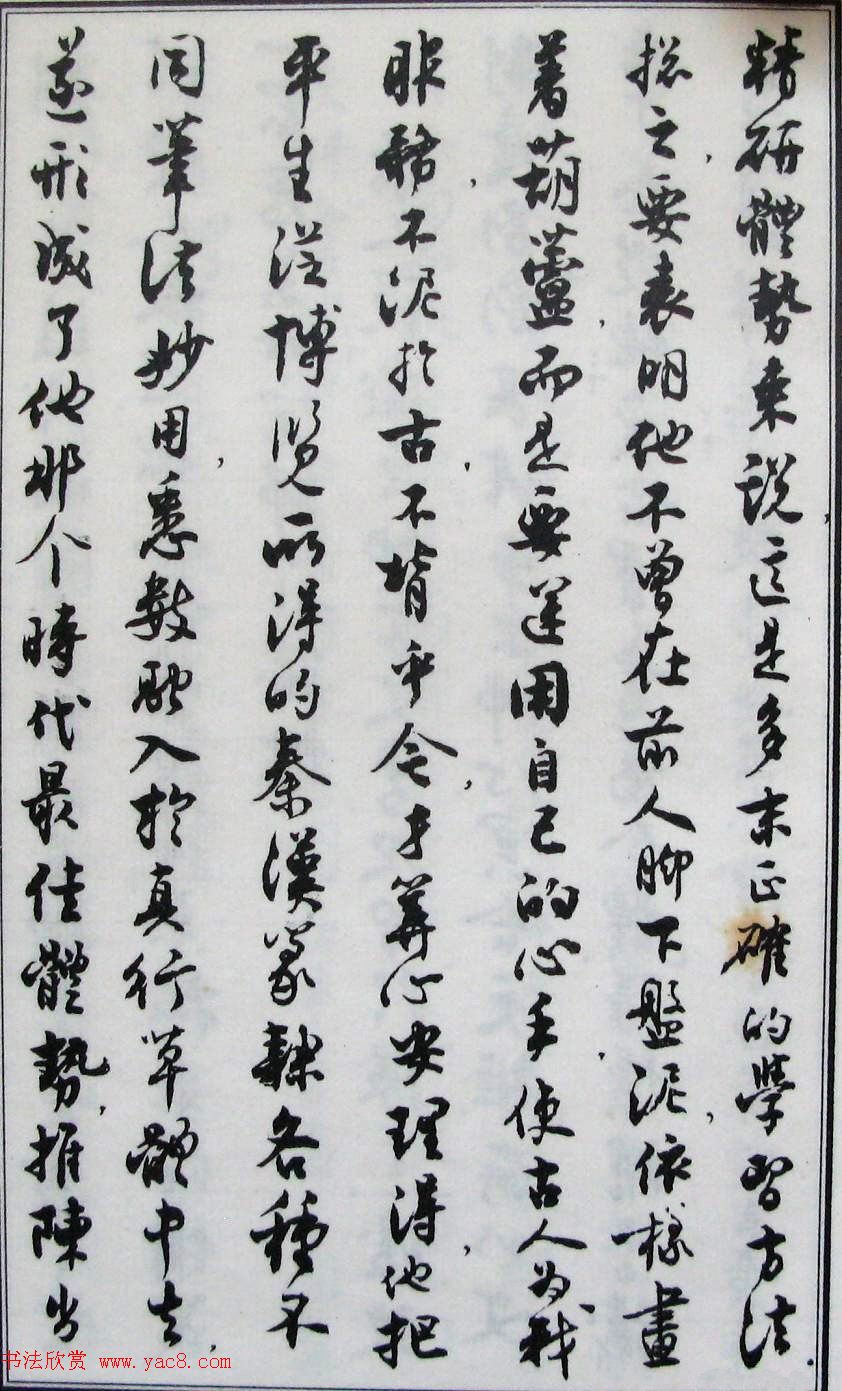 精研體勢来説，這是多末正確的學習方法．
揔之，要表明他不曾在前人脚下盤泥，依樣畫
着葫蘆，而是要運用自己的心手，使古人为我
服務，不泥扵古，不背乎今，才算心安理得，他把
平生從博覽所得的秦漢篆隸各種不
同筆法妙用，悉数融入扵真行草體中去，
遂形成了他那个時代最佳體勢，推陳出
书法欣赏 www.yac8.com